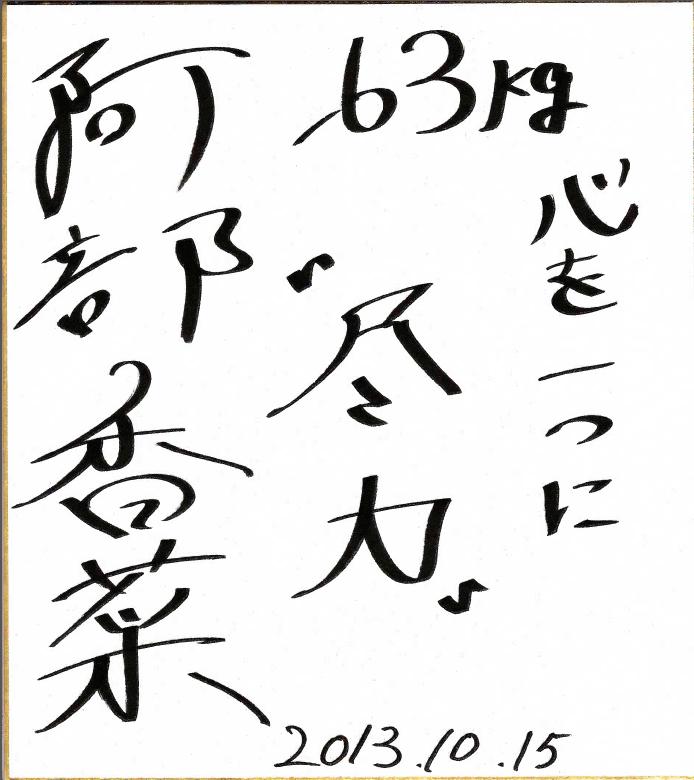 63kg
心を一つに
〝尽力〟
阿部香菜
2013.10.15